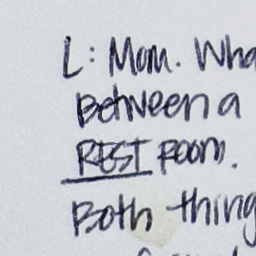 L: Mom. Wha
Between a
REST ROOM.
Both thing